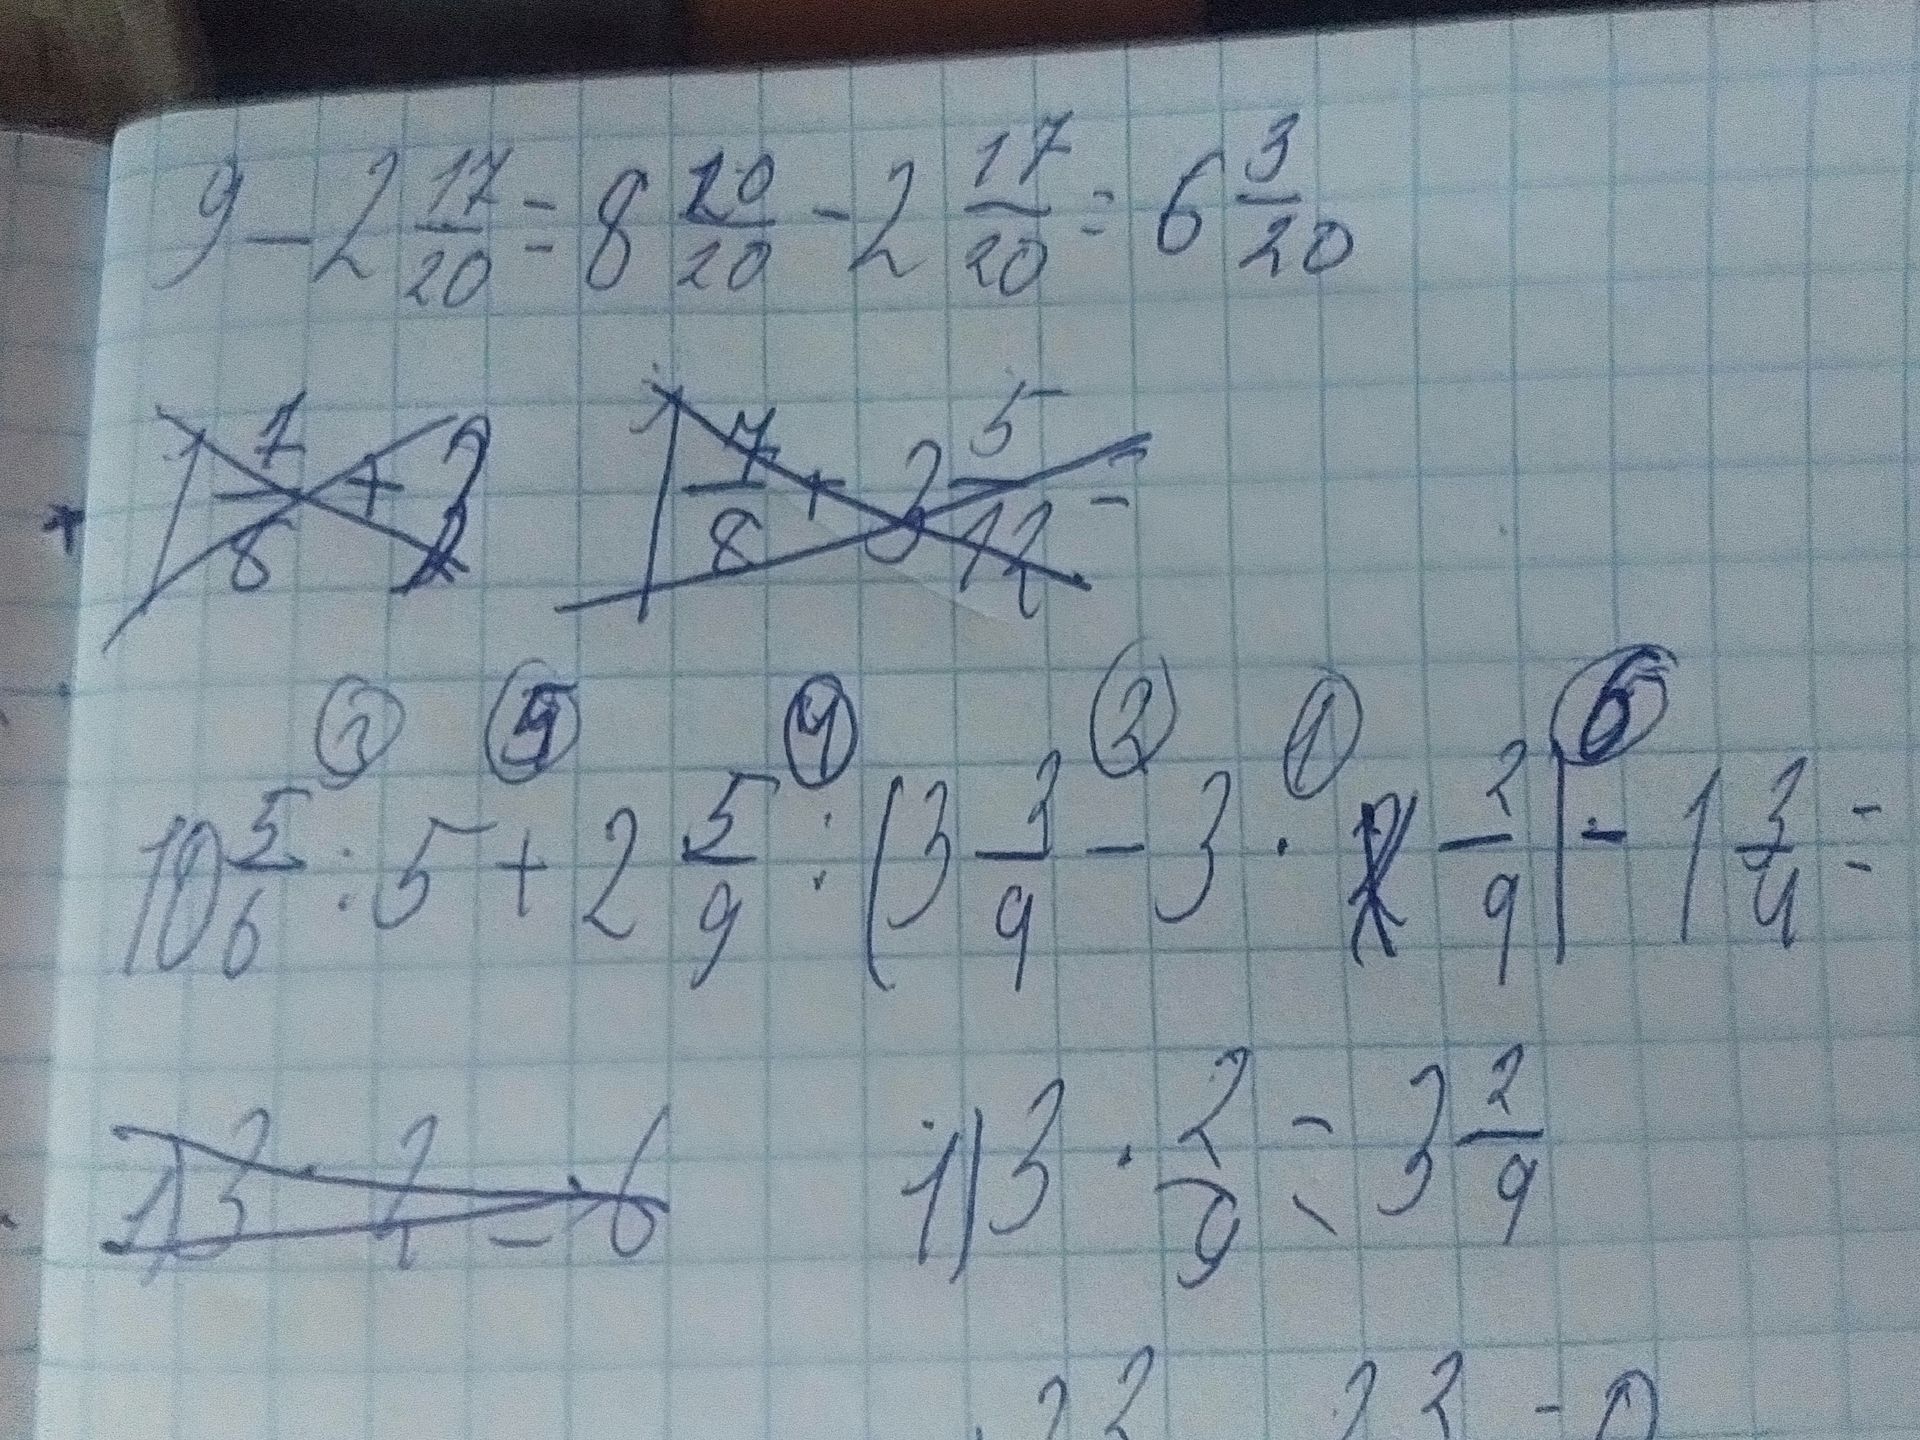 9 - 2 17/20 = 8 20/20 - 2 17/20 = 6 3/20
1) 7/8 + 1) 7/8 + 3 5/12 =
③ ⑤ ④ ② ① ⑥
10 5/6 : 5 + 2 5/9 : (3 3/9 - 3 · 2/9) - 1 3/4 =
1) 3 · 2 = 6 1) 3 · 2/9 = 3 2/9